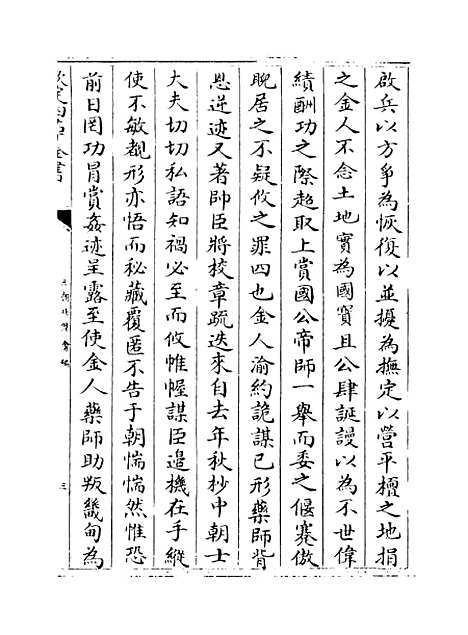 啟兵以方爭為恢復以並擾為撫定以營平檀之地捐
之金人不念土地實為國寶且公肆誕謾以為不世偉
績酬功之際超取上賞國公帝師一舉而委之偃蹇傲
睨居之不疑攸之罪四也金人渝約詭謀已形藥師背
恩逆迹又著帥臣將校章疏迭來自去年秋杪中朝士
大夫切切私語知禍必至而攸帷幄謀臣邉機在手縱
使不敏覩形亦悟而秘藏覆匿不告于朝惴惴然惟恐
前日罔功冒賞姦迹呈露至使金人藥師助叛畿甸為
欽定四庫全書
三朝北盟會編
三